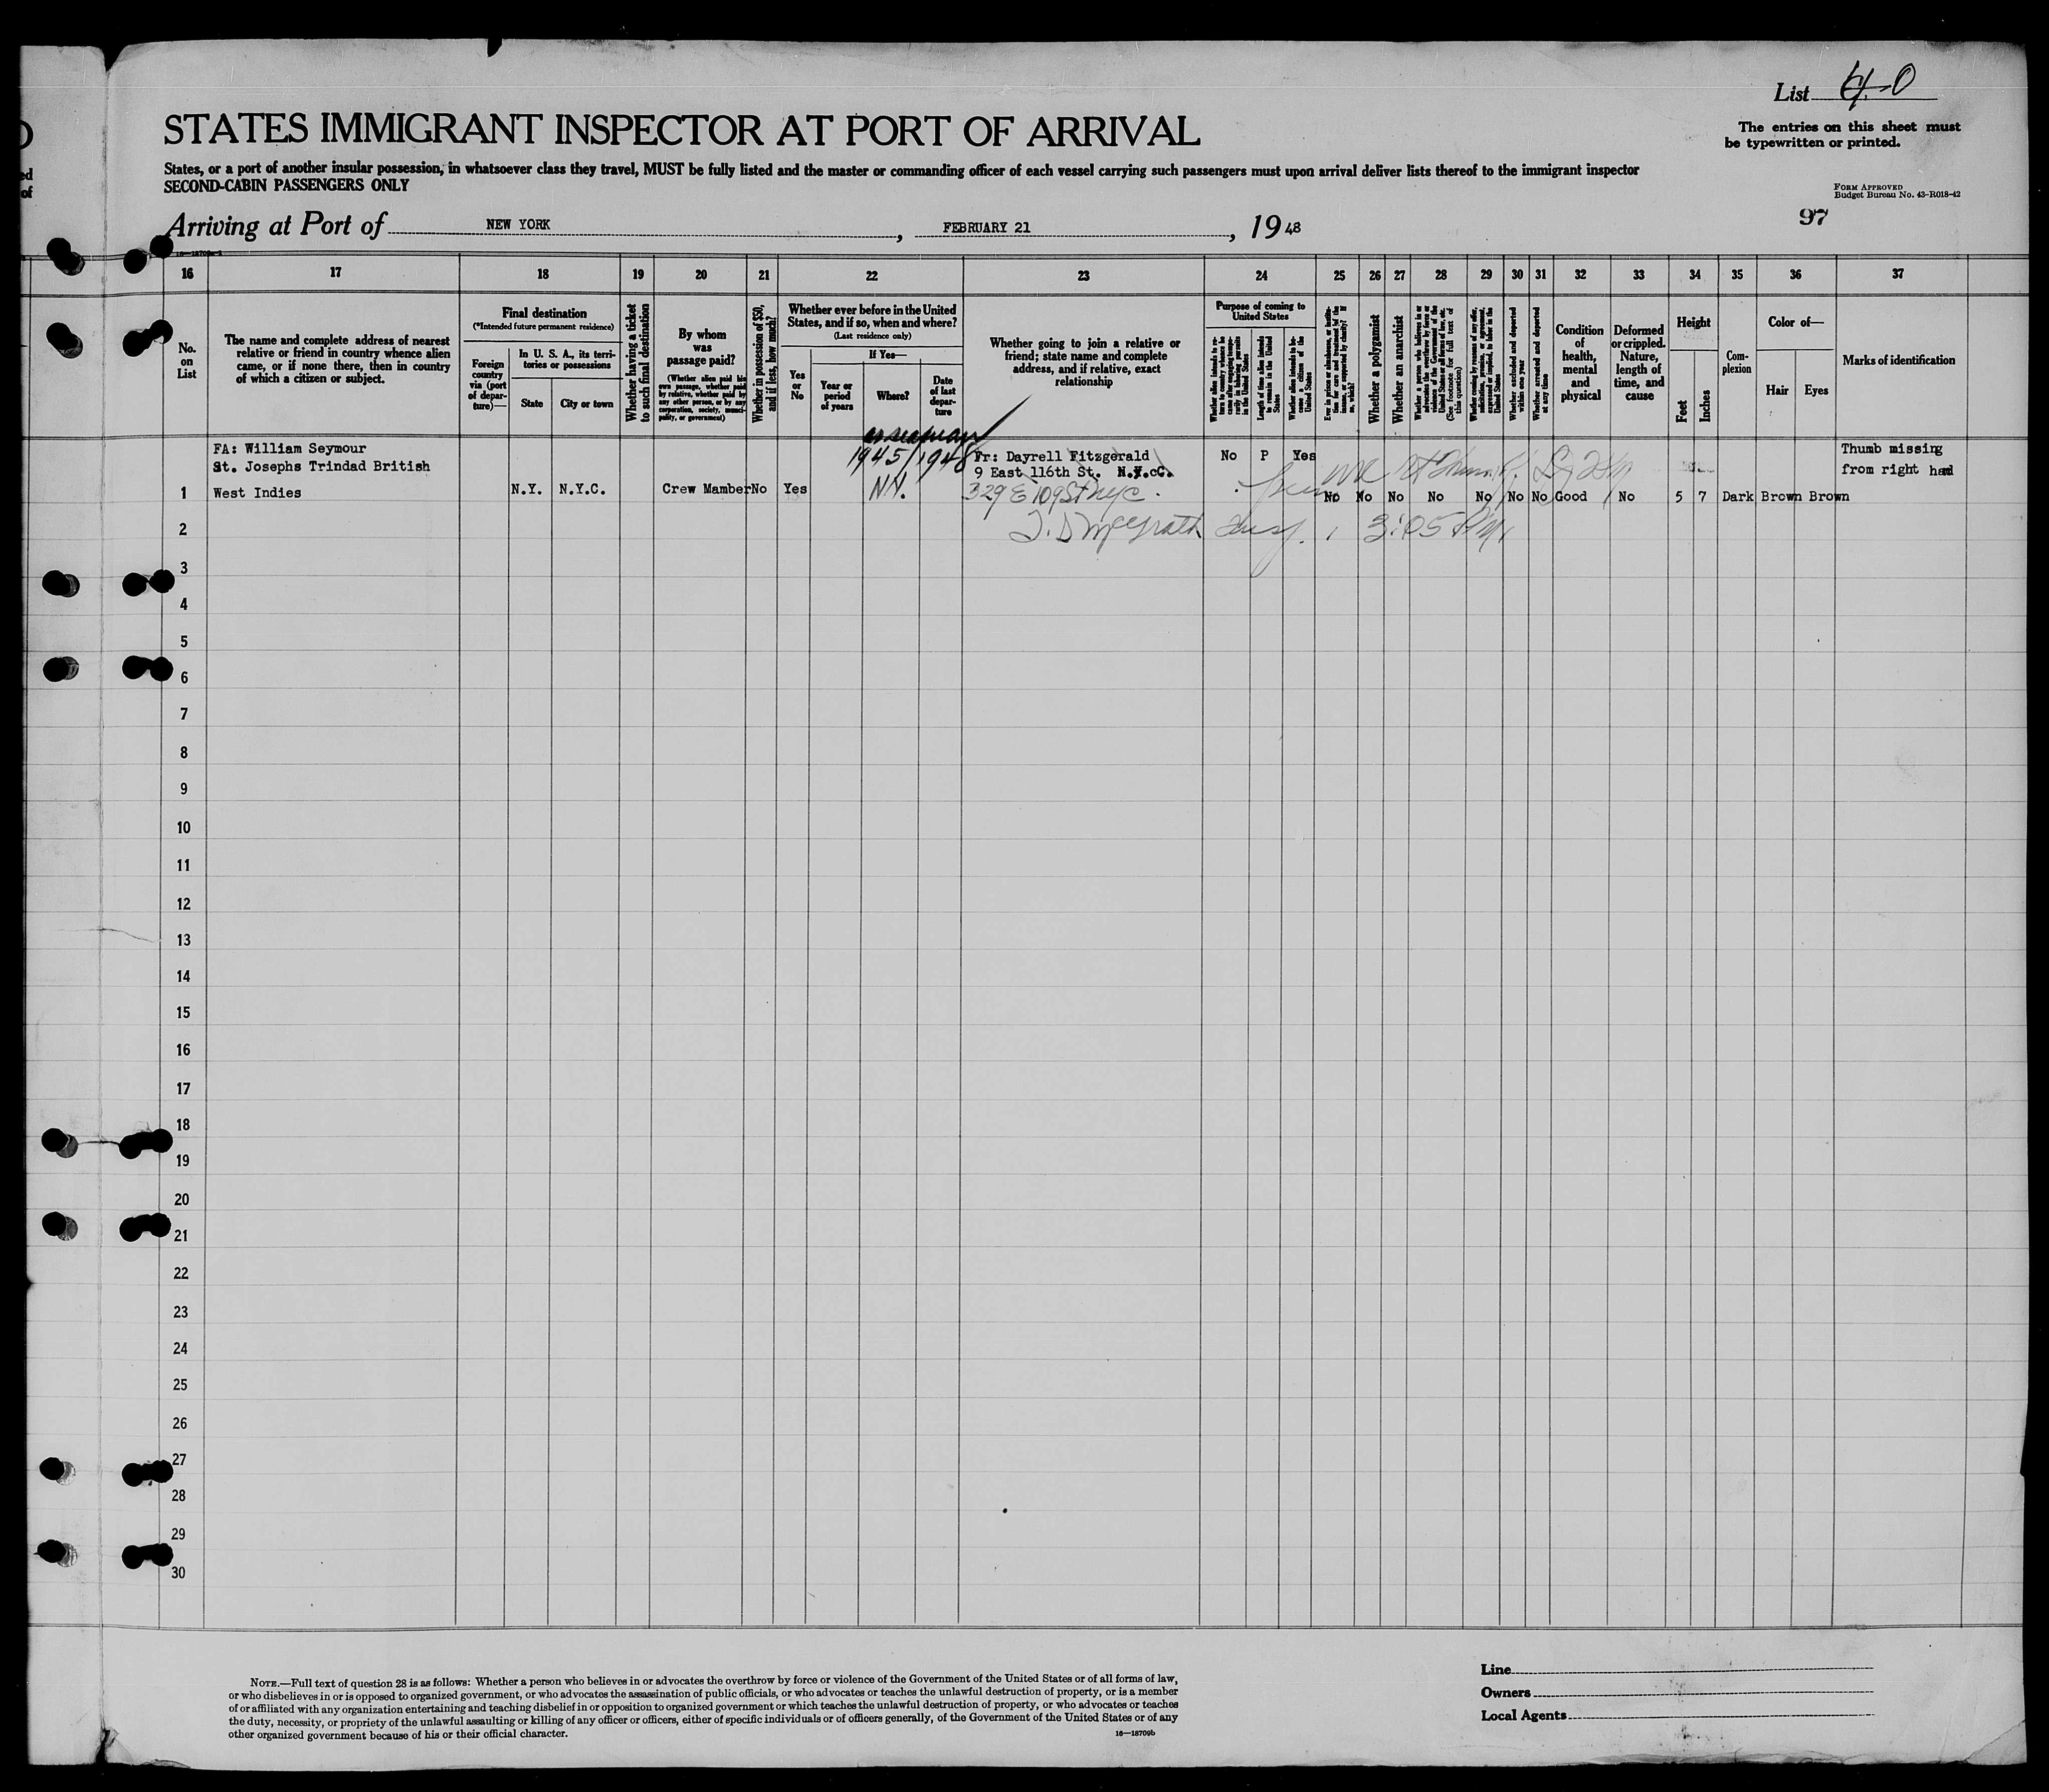 List 4-0
STATES IMMIGRANT INSPECTOR AT PORT OF ARRIVAL
The entries on this sheet must
be typewritten or printed.
States, or a port of another insular possession, in whatsoever class they travel, MUST be fully listed and the master or commanding officer of each vessel carrying such passengers must upon arrival deliver lists thereof to the immigrant inspector
SECOND-CABIN PASSENGERS ONLY
FORM APPROVED
Budget Bureau No. 43-R018-42
97
Arriving at Port of NEW YORK, FEBRUARY 21, 1948
16 17 18 19 20 21 22 23 24 25 26 27 28 29 30 31 32 33 34 35 36 37
No.
on
List
The name and complete address of nearest
relative or friend in country whence alien
came, or if none there, then in country
of which a citizen or subject.
Final destination
(*Intended future permanent residence)
Foreign
country
via (port
of depar-
ture)—
In U. S. A., its terri-
tories or possessions
State
City or town
Whether having a ticket
to such final destination
By whom
was
passage paid?
(Whether alien paid his
own passage, whether paid
by relative, whether paid by
any other person, or by any
corporation, society, munici-
pality, or government)
Whether in possession of $50,
and if less, how much?
Whether ever before in the United
States, and if so, when and where?
(Last residence only)
Yes
or
No
If Yes—
Year or
period
of years
Where?
Date
of last
depar-
ture
Whether going to join a relative or
friend; state name and complete
address, and if relative, exact
relationship
Purpose of coming to
United States
Length of time alien intends
to remain in the United
States
Whether alien intends to be-
come a citizen of the
United States
Whether a polygamist
Whether an anarchist
(See footnote for full text of
this question)
Whether excluded and deported
within one year
Whether arrested and deported
at any time
Condition
of
health,
mental
and
physical
Deformed
or crippled.
Nature,
length of
time, and
cause
Height
Feet
Inches
Com-
plexion
Color of—
Hair
Eyes
Marks of identification
as seaman
FA: William Seymour
St. Josephs Trindad British
1 West Indies N.Y. N.Y.C. Crew Mamber No Yes
1945/1948
N.Y.
Fr: Dayrell Fitzgerald
9 East 116th St. N.Y.C.
329 E 109 St NYC.
No P Yes
No No No No No No No Good No 5 7 Dark Brown Brown
Thumb missing
from right had
T. D McGrath Insp. 3:05 PM
2
3
4
5
6
7
8
9
10
11
12
13
14
15
16
17
18
19
20
21
22
23
24
25
26
27
28
29
30
NOTE.—Full text of question 28 is as follows: Whether a person who believes in or advocates the overthrow by force or violence of the Government of the United States or of all forms of law,
or who disbelieves in or is opposed to organized government, or who advocates the assassination of public officials, or who advocates or teaches the unlawful destruction of property, or is a member
of or affiliated with any organization entertaining and teaching disbelief in or opposition to organized government or which teaches the unlawful destruction of property, or who advocates or teaches
the duty, necessity, or propriety of the unlawful assaulting or killing of any officer or officers, either of specific individuals or of officers generally, of the Government of the United States or of any
other organized government because of his or their official character.
16—18709b
Line
Owners
Local Agents